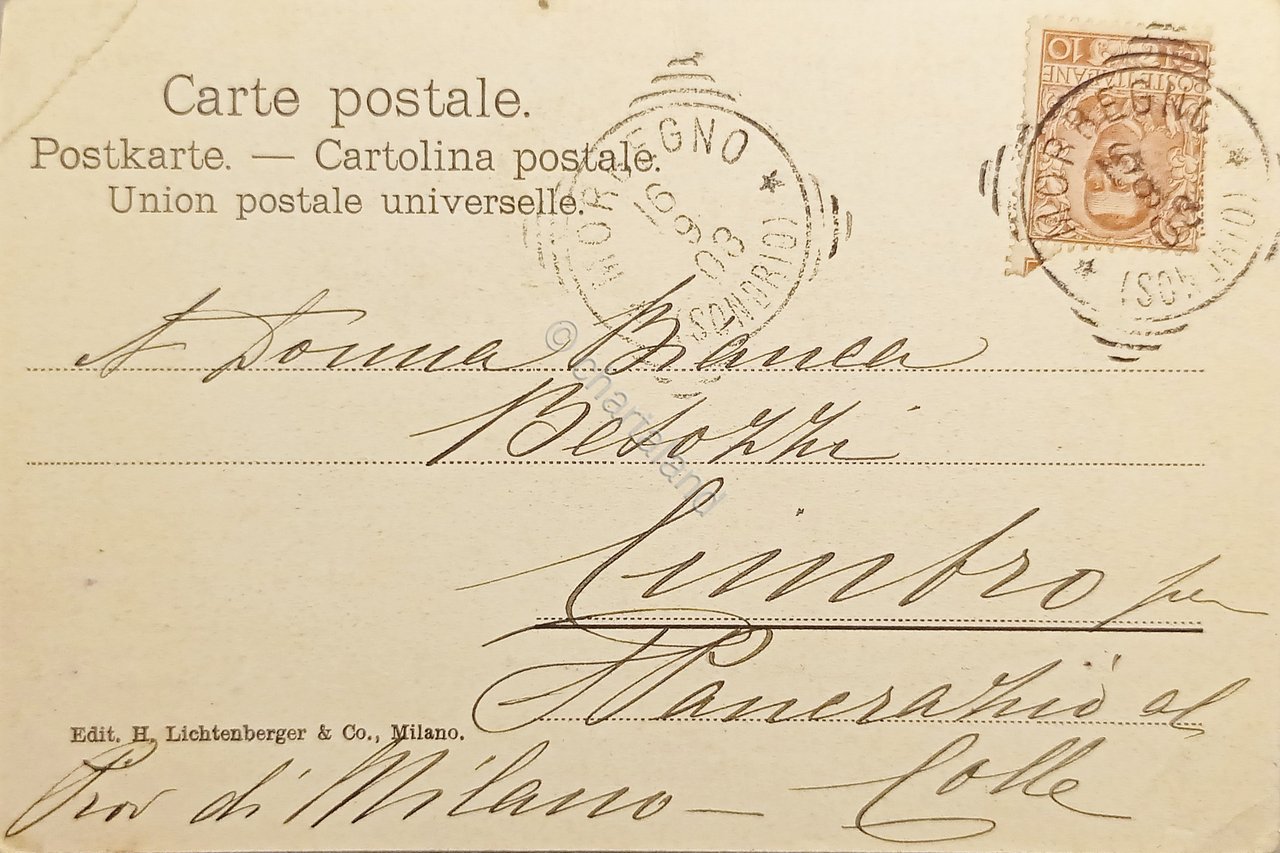 Carte postale.
Postkarte. — Cartolina postale.
Union postale universelle.
MORBEGNO
16 9 03
(SONDRIO)
POSTE ITALIANE
10
MORBEGNO
16 9 03
(SONDRIO)
A Donna Bianca
Besozzi
© chartaland
Cimbro per
S Pancrazio al
Colle
Edit. H. Lichtenberger & Co., Milano.
Prov di Milano —